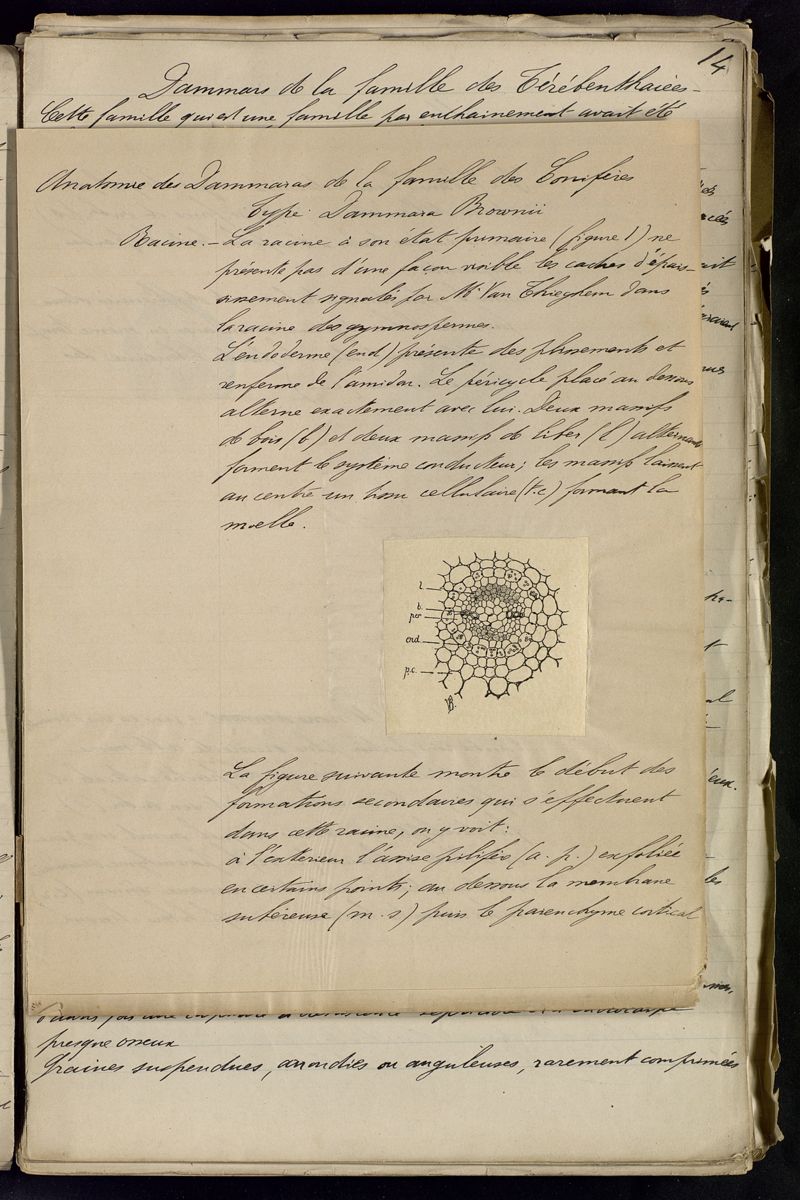 14
Dammars de la famille des Térébenthacées -
Cette famille qui est une famille par enchainement avait été
Anatomie des Dammaras de la famille des Conifères
Type: Dammara Brownii
Racine. - La racine à son état primaire (figure 1) ne
présente pas d'une façon visible les cadres d'épais-
sissement signalés par Mr Van Thieghem dans
la racine des gymnospermes.
L'endoderme (end) présente des plissements et
renferme de l'amidon. Le péricycle placé au dessous
alterne exactement avec lui. Deux massifs
de bois (b) et deux massifs de liber (l) alternants
forment le système conducteur; les massifs laissent
au centre un tissu cellulaire (t.c) formant la
moelle.
l.
b.
per
end.
p.c.
La figure suivante montre le début des
formations secondaires qui s'effectuent
dans cette racine, on y voit:
à l'extérieur l'assise pilifère (a. p.) exfoliée
en certains points; au dessous la membrane
subéreuse (m. s) puis le parenchyme cortical
presque osseux
Graines suspendues, arrondies ou anguleuses, rarement comprimées